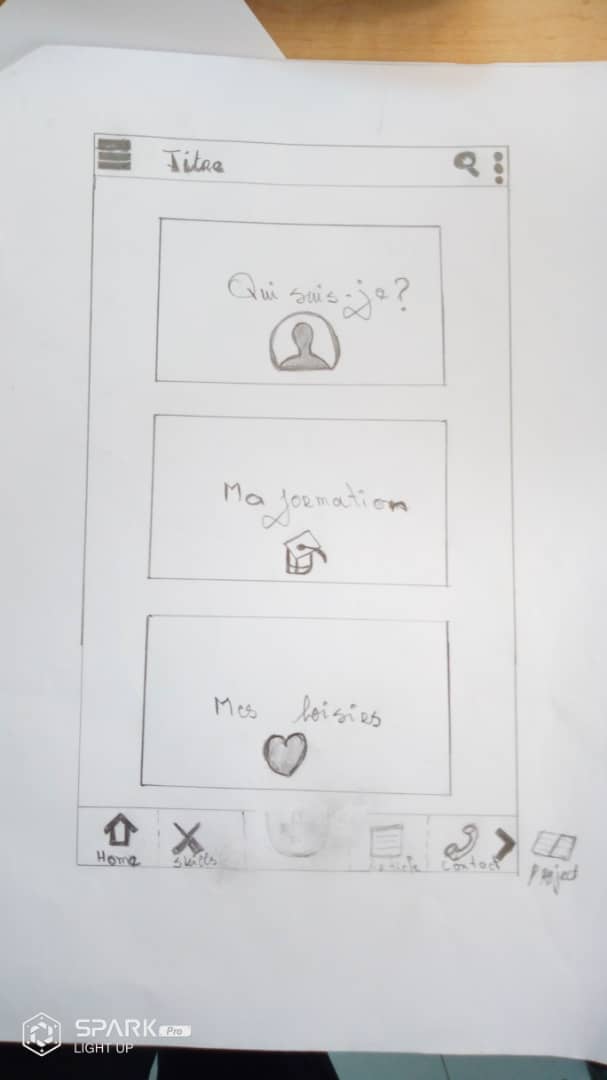 Titre
Qui suis-je?
Ma formation
Mes loisies
Home
Skills
Contact
Project
SPARK Pro
LIGHT UP